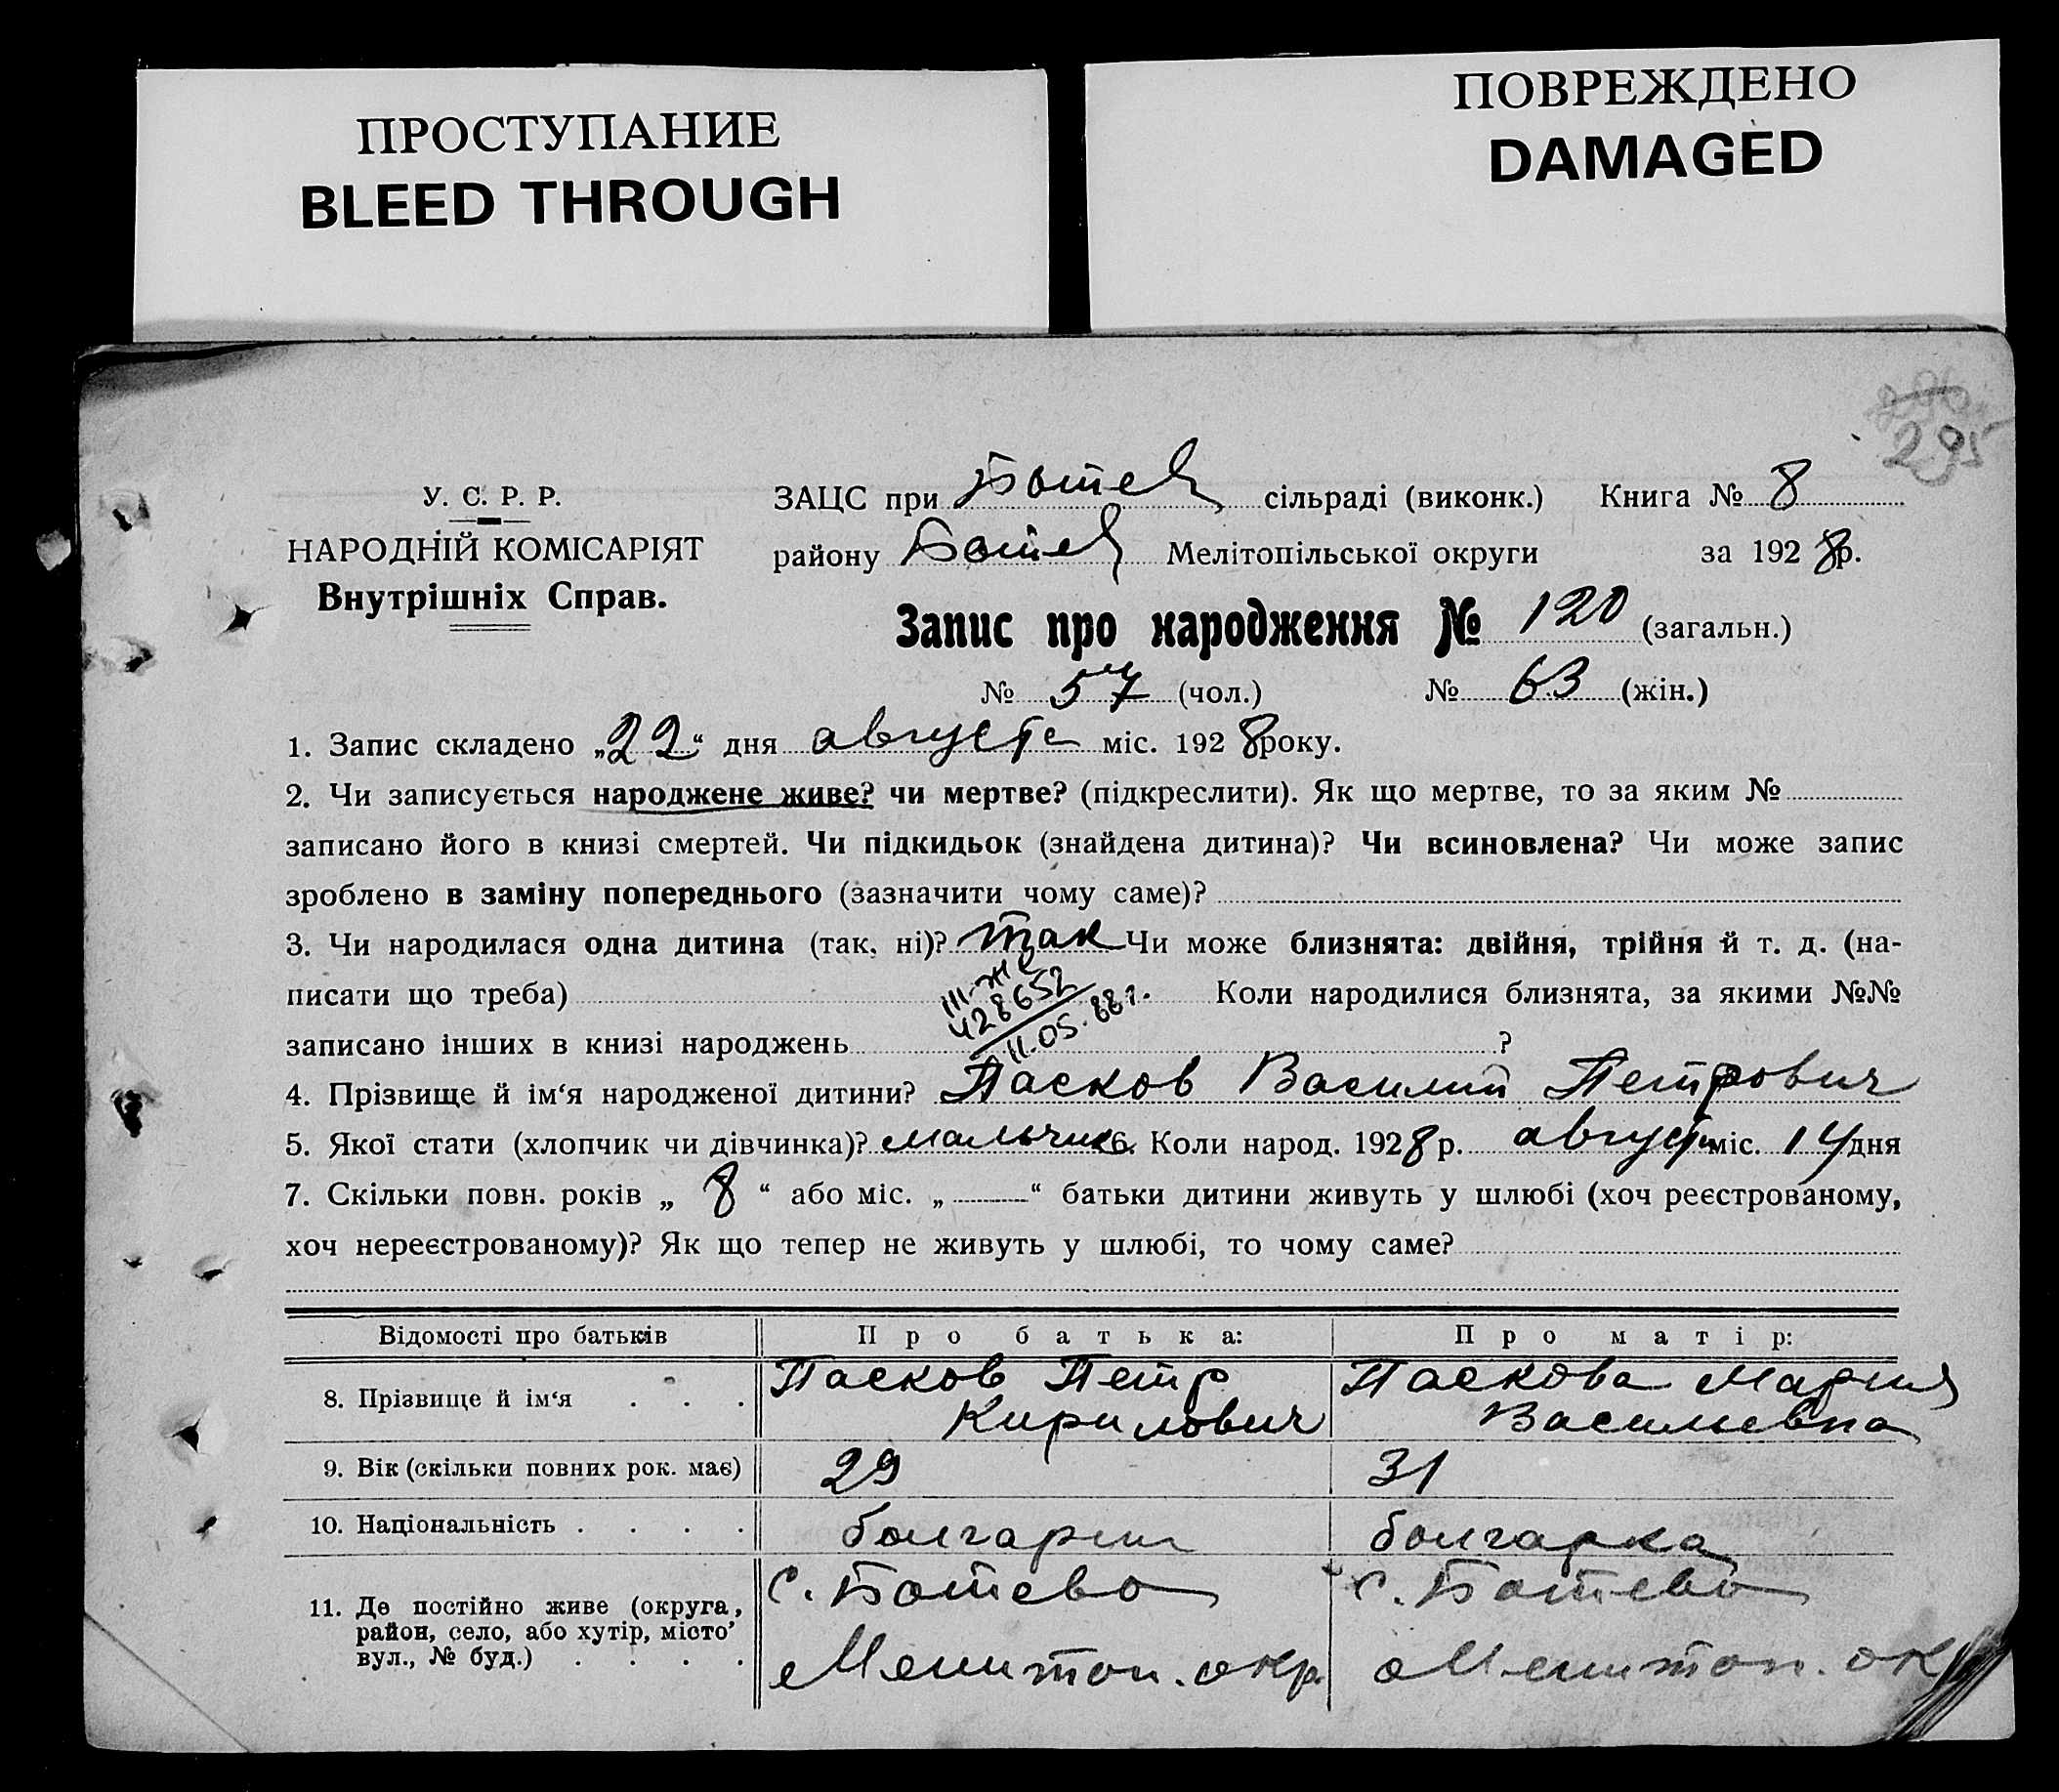 ПРОСТУПАНИЕ
BLEED THROUGH
ПОВРЕЖДЕНО
DAMAGED
295
У. С. Р. Р.
НАРОДНІЙ КОМІСАРІЯТ
Внутрішніх Справ.
ЗАЦС при Ботев сільраді (виконк.) Книга № 8
району Ботев Мелітопільської округи за 1928р.
Запис про народження № 120 (загальн.)
№ 57 (чол.) № 63 (жін.)
1. Запис складено „22“ дня августа міс. 1928року.
2. Чи записується народжене живе? чи мертве? (підкреслити). Як що мертве, то за яким №
записано його в книзі смертей. Чи підкидьок (знайдена дитина)? Чи всиновлена? Чи може запис
зроблено в заміну попереднього (зазначити чому саме)?
3. Чи народилася одна дитина (так, ні)? так Чи може близнята: двійня, трійня й т. д. (на-
писати що треба) Коли народилися близнята, за якими №№
III-ЖС
428652
11.05.88г.
записано інших в книзі народжень ?
4. Прізвище й ім‘я народженої дитини? Пасков Василий Петрович
5. Якої стати (хлопчик чи дівчинка)? мальчик 6. Коли народ. 1928р. августа міс. 14 дня
7. Скільки повн. років „ 8 “ або міс. „ — “ батьки дитини живуть у шлюбі (хоч реєстрованому,
хоч нереєстрованому)? Як що тепер не живуть у шлюбі, то чому саме?
Відомості про батьків Про батька: Про матір:
8. Прізвище й ім‘я . . . Пасков Петр Кирилович Паскова Мария Васильевна
9. Вік (скільки повних рок. має) 29 31
10. Національність . . . . болгарин болгарка
11. Де постійно живе (округа, район, село, або хутір, місто’ вул., № буд.) . . . . с. Ботево Мелитоп. окр. с. Ботево Мелитоп. окр